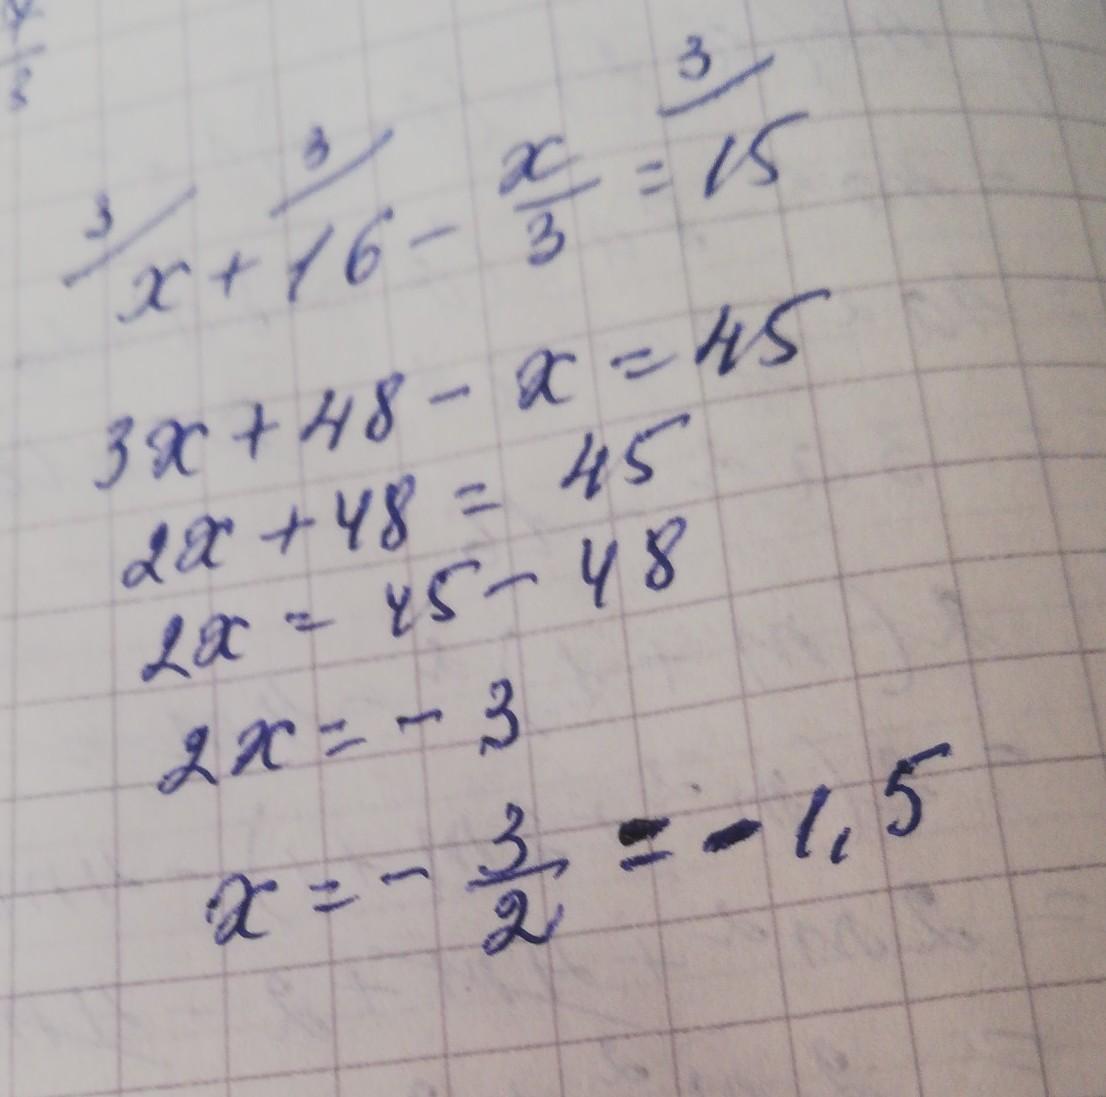 3/ 3/ 3/
x + 16 - x/3 = 15
3x + 48 - x = 45
2x + 48 = 45
2x = 45 - 48
2x = - 3
x = - 3/2 = - 1,5